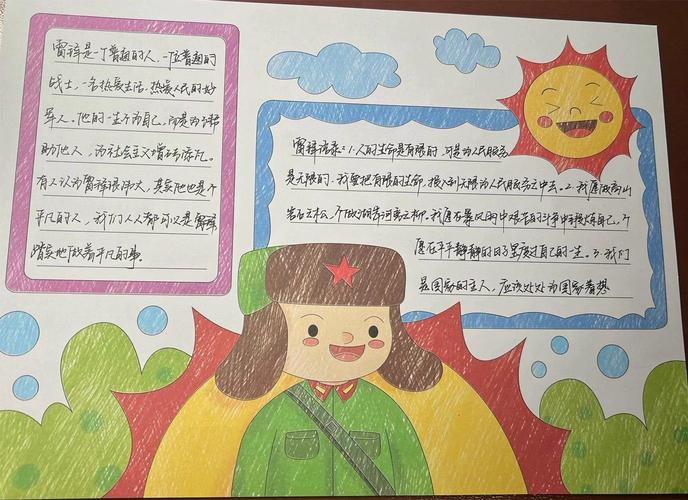 雷锋是一个普通的人,一位普通的
战士,一名热爱生活、热爱人民的好
军人。他的一生不为自己,而是为了帮
助他人,为社会主义增砖添瓦。
有人认为雷锋很伟大,其实他也是个
平凡的人,我们人人都可以是雷锋
踏实地做着平凡的事。
雷锋语录:1.人的生命是有限的,可是为人民服务
是无限的,我要把有限的生命,投入到无限为人民服务之中去。2.我愿做高山
岩石之松,不做湖岸河旁之柳。我愿在暴风雨中艰苦的斗争中锻炼自己,不
愿在平平静静的日子里度过自己的一生。3.我们
是国家的主人,应该处处为国家着想